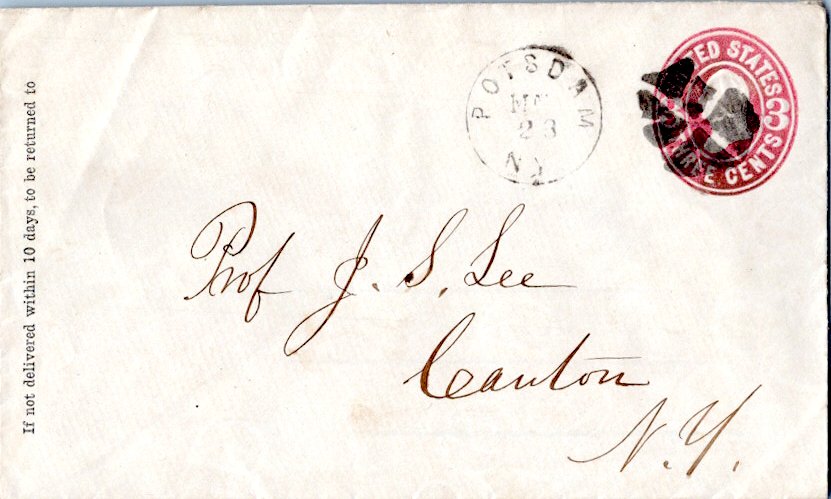 If not delivered within 10 days, to be returned to
POTSDAM
23
N.Y.
UNITED STATES
3 3
THREE CENTS
Prof J. S. Lee
Canton
N.Y.